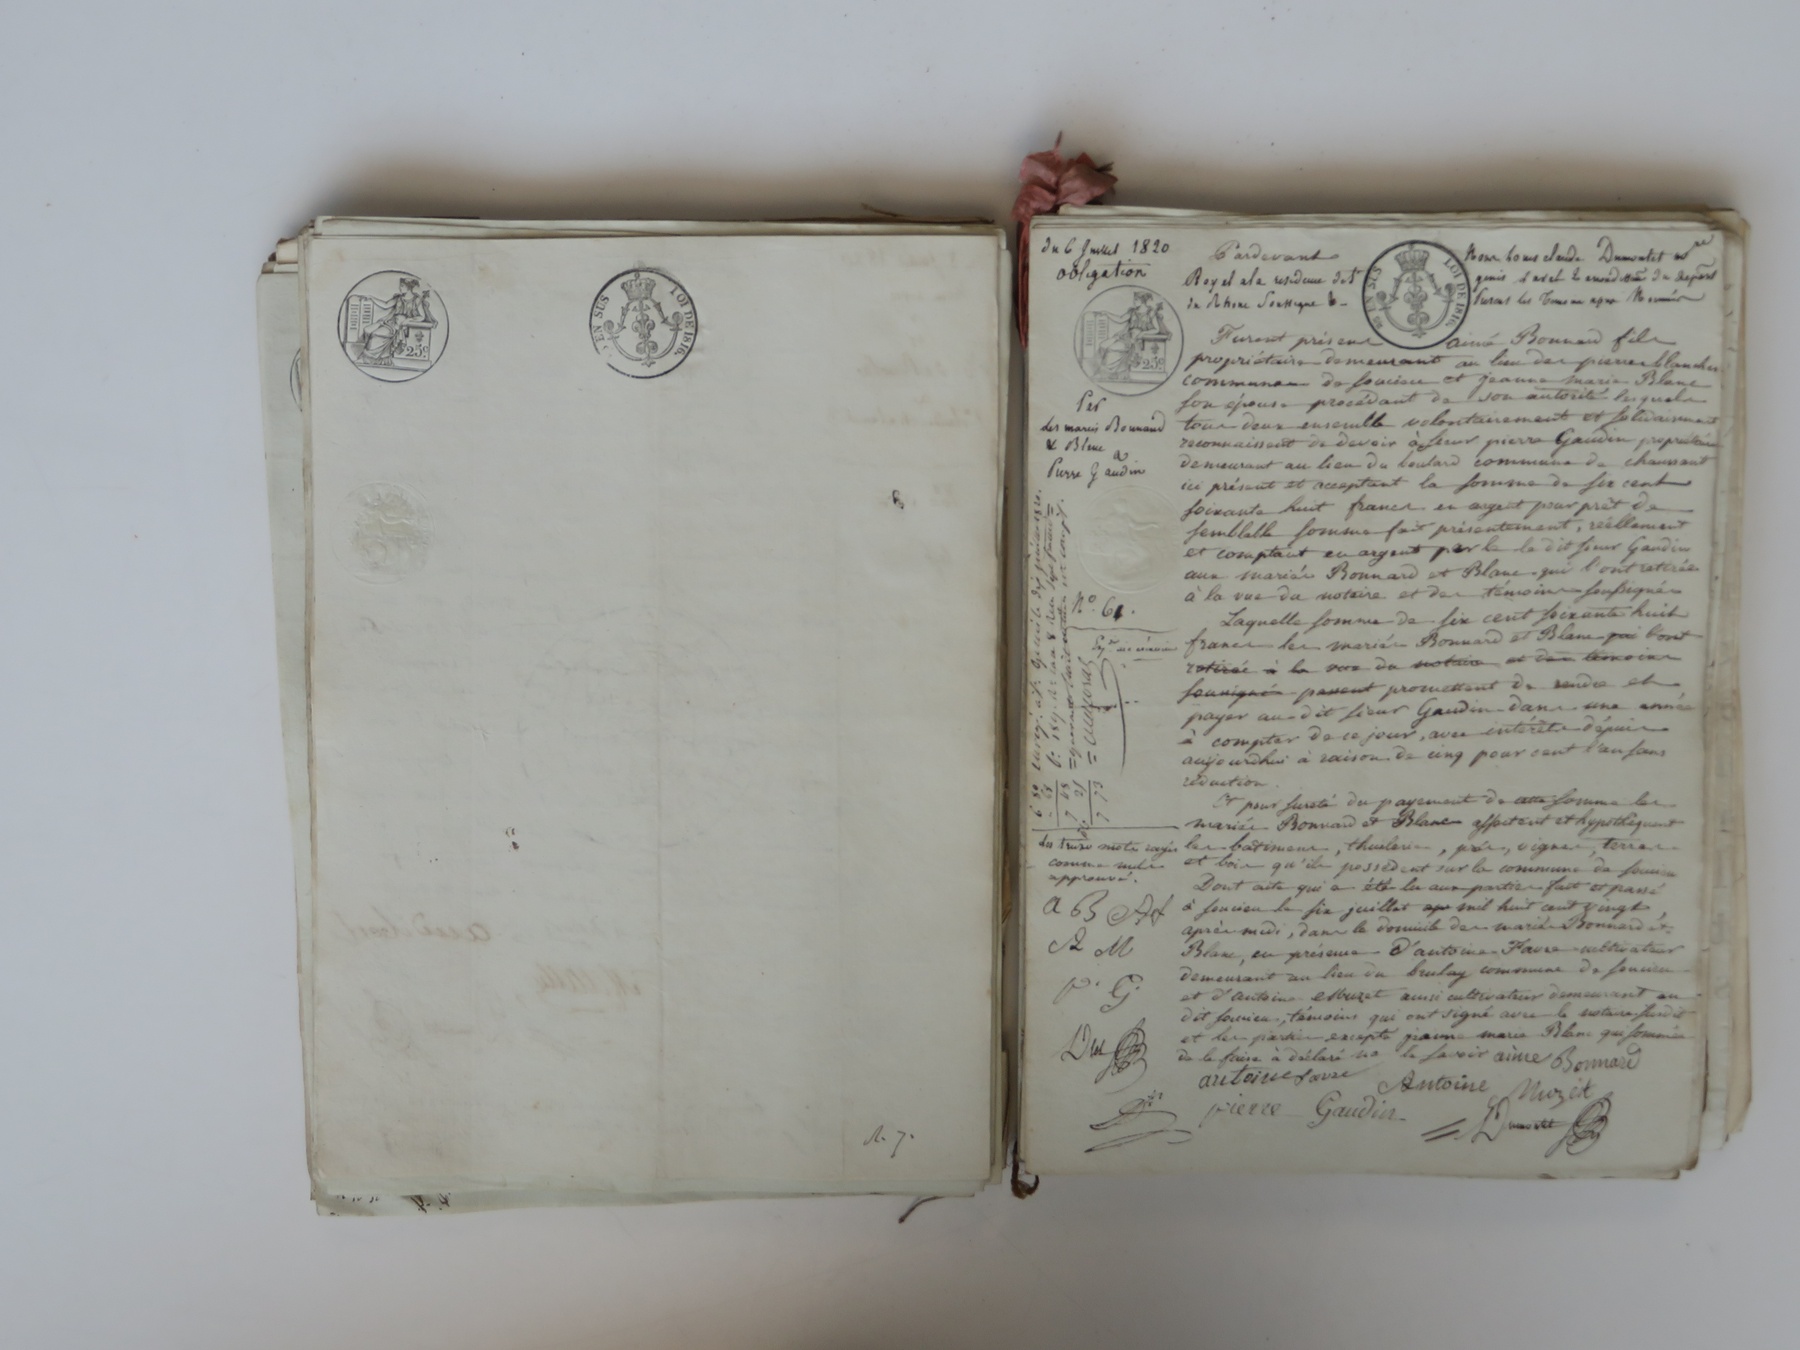 25c
EN SUS LOI DE 1816.
R. 7.
du 6 Juillet 1820
obligation
25c
Par
des mariés Bonnard
& Blanc
a
Pierre Gaudin
N° 61.
6 80
68
7 48
25
7 73
des treize mots rayés
comme nuls
approuvé.
A B AF
A M
P. G.
Pardevant Nous Louis Claude Dumontet
Royal a la residence de St genis Laval
du Rhône Soussigné
EN SUS LOI DE 1816.
Furent présens aimé Bonnard fils
propriétaire demeurant au lieu des pierres blanches
commune de soucieu et jeanne marie Blanc
son épouse procédant de son autorité lesquels
tous deux ensemble volontairement et solidairement
reconnaissent de devoir à sieur pierre Gaudin propriétaire
demeurant au lieu du boulard commune de chaussant
ici présent et acceptant la somme de six cent
soixante huit francs en argent pour prêt de
semblable somme fait présentement, réellement
et comptant en argent par le dit sieur Gaudin
aux mariés Bonnard et Blanc qui l'ont retirée
à la vue du notaire et des témoins soussignés
Laquelle somme de six cent soixante huit
francs les mariés Bonnard et Blanc qui l'ont
retirée à la vue du notaire et des témoins
soussignés promettent de rendre et
payer au dit sieur Gaudin dans une année
à compter de ce jour, avec intérêts dépuis
aujourdhui à raison de cinq pour cent l'an sans
réduction.
Et pour sureté du payement de cette somme les
mariés Bonnard et Blanc affectent et hypothèquent
les bâtimens, thuilerie, prés, vignes, terres
et bois qu'ils possèdent sur la commune de soucieu
Dont acte qui a été lu aux parties fait et passé
à soucieu le six juillet mil huit cent vingt
après midi, dans le domicile des mariés Bonnard et
Blanc, en présence d'antoine Favre cultivateur
demeurant au lieu du brulay commune de soucieu
et d'Antoine Muzet aussi cultivateur demeurant au
dit soucieu, témoins qui ont signé avec le notaire susdit
et les parties excepté jeanne marie Blanc qui sommée
de le faire à déclaré ne le savoir aimé Bonnard
antoine favre Antoine Muzet
pierre Gaudin Dumontet